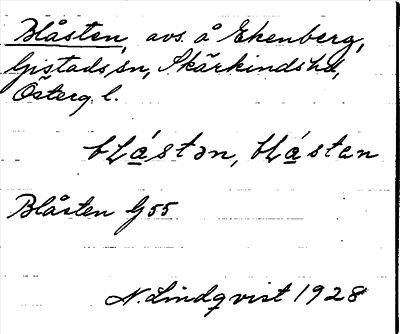 Blåsten, avs. å Ekenberg,
Gistads sn, Skärkinds hd,
Österg. l.
bʟá̱stən, bʟá̱stan
Blåsten G 55
N. Lindqvist 1928